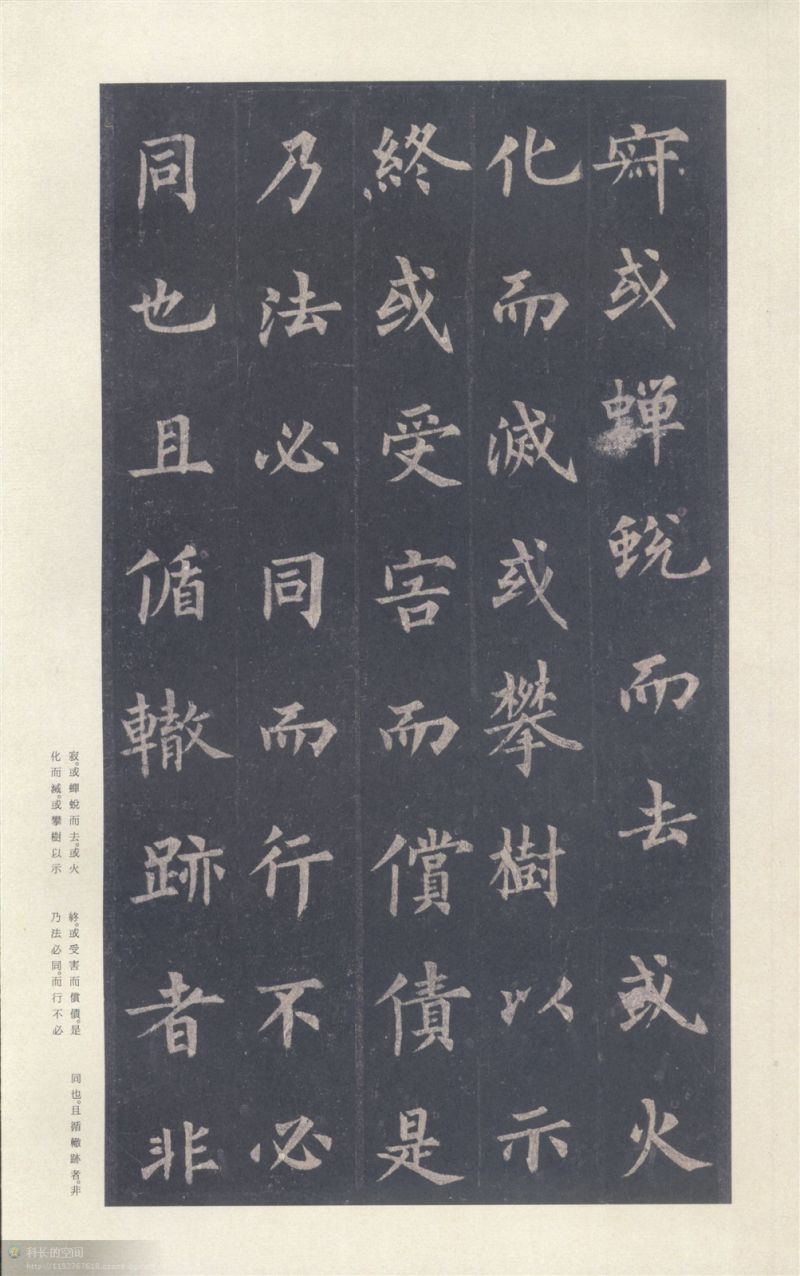 寂或蟬蛻而去或火
化而滅或攀樹以示
終或受害而償債是
乃法必同而行不必
同也且循轍跡者非
寂。或蟬蛻而去。或火
化而滅。或攀樹以示
終。或受害而償債。是
乃法必同。而行不必
同也。且循轍跡者。非
科长的空间